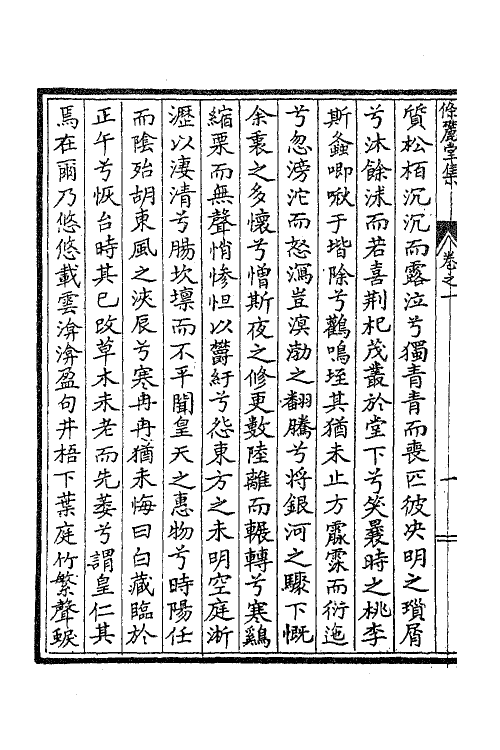 條麓堂集
卷之一
一
質松栢沉沉而露泣兮獨青青而喪匹彼决明之瑣屑
兮沐餘沬而若喜荆杞茂叢於堂下兮笑曩時之桃李
斯螽唧啾于堦除兮鸛鳴垤其猶未止方霡霂而衍迤
兮忽滂沱而怒瀉豈溟渤之翻騰兮將銀河之驟下慨
余褱之多懷兮憎斯夜之修更數陸離而輾轉兮寒鷄
縮栗而無聲悄慘怛以欝紆兮怨東方之未明空庭淅
瀝以淒清兮腸坎壈而不平聞皇天之惠物兮時陽任
而陰殆胡東風之浹辰兮寒冉冉猶未悔曰白藏臨於
正午兮恢台時其已改草木未老而先萎兮謂皇仁其
焉在爾乃悠悠載雲渰渰盈旬井梧下葉庭竹繁聲蜧